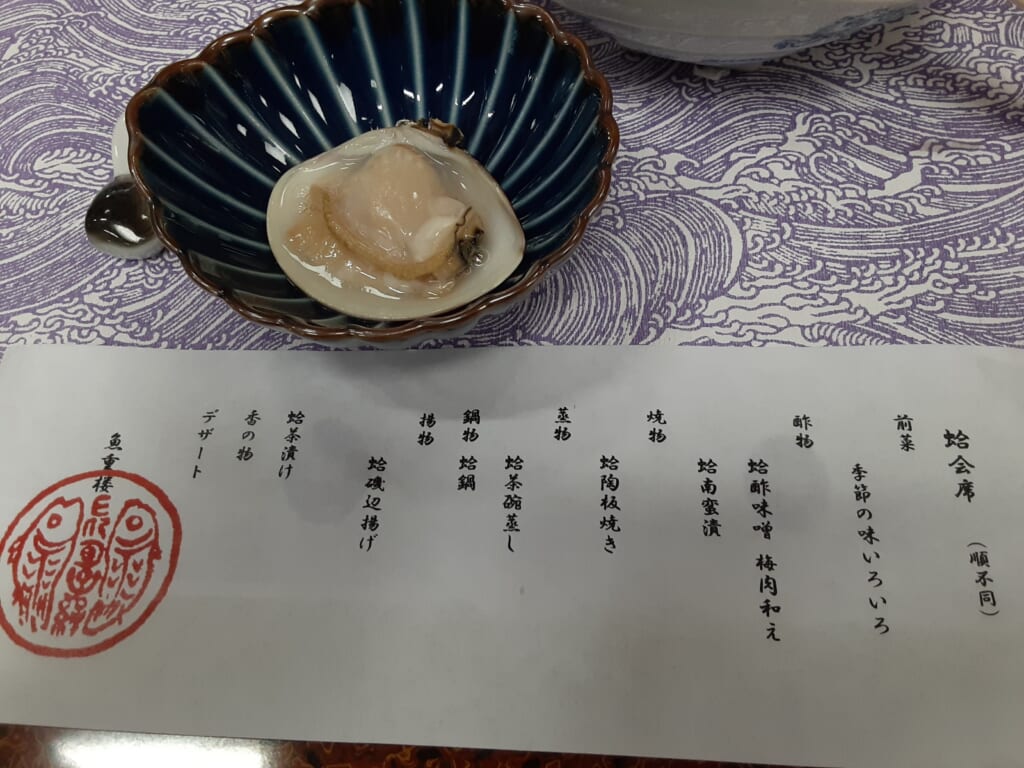 蛤会席
（順不同）
前菜
季節の味いろいろ
酢物
蛤酢味噌 梅肉和え
蛤南蛮漬
焼物
蛤陶板焼き
蒸物
蛤茶碗蒸し
鍋物 蛤鍋
揚物
蛤磯辺揚げ
蛤茶漬け
香の物
デザート
魚重楼